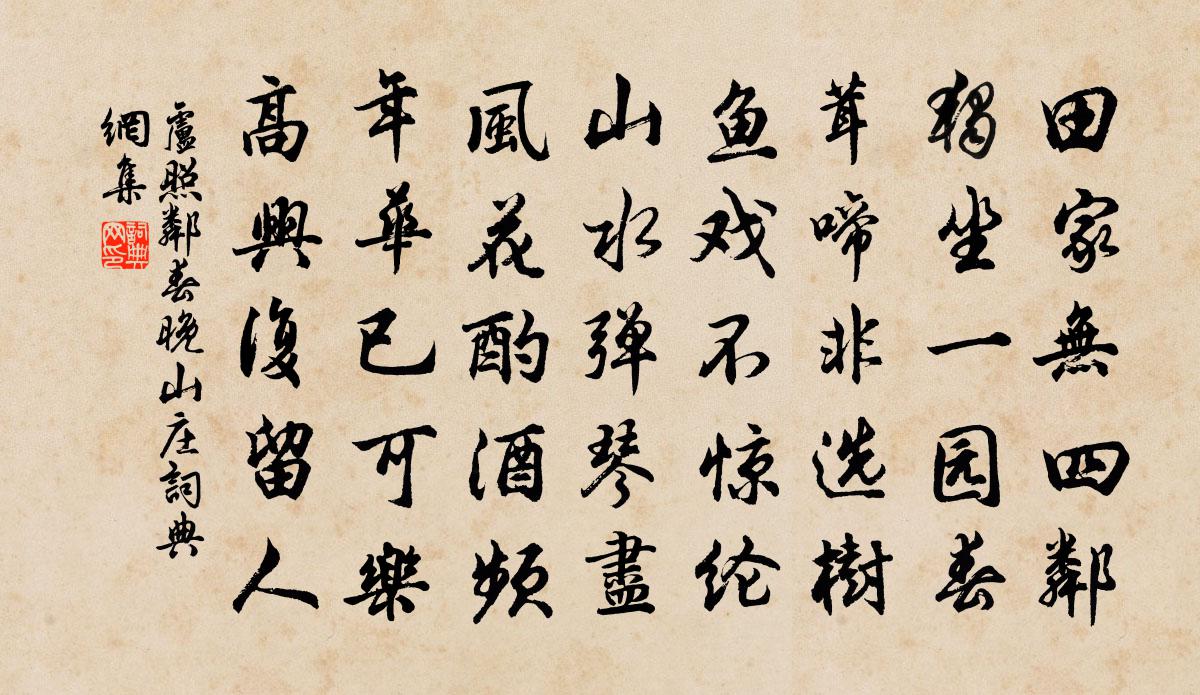 田家無四鄰
獨坐一园春
茸啼非选樹
鱼戏不惊纶
山水弹琴盡
風花酌酒频
年華已可樂
高興復留人
盧照鄰春晚山庄詞典
網集
詞典
网印